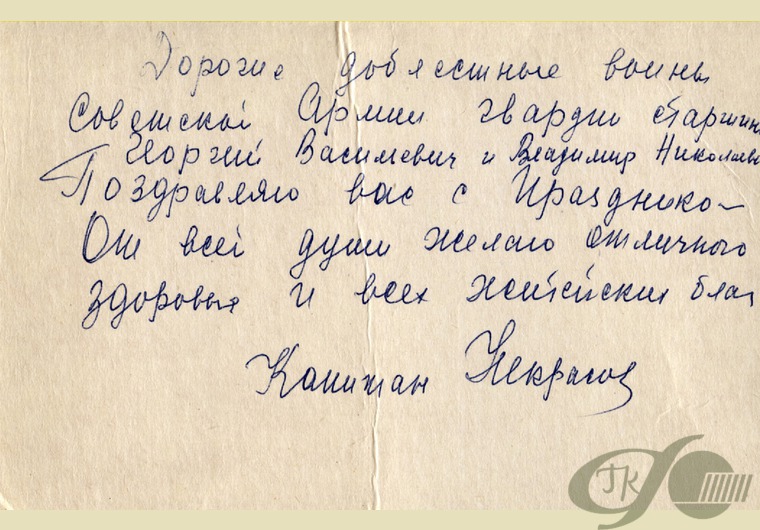 Дорогие доблестные воины
Советской Армии гвардии старшин
Георгий Василиевич и Владимир Николаеви
Поздравляю вас с Праздником
От всей души желаю отличного
здоровья и всех житейских благ
Капитан Некрасов
ГК